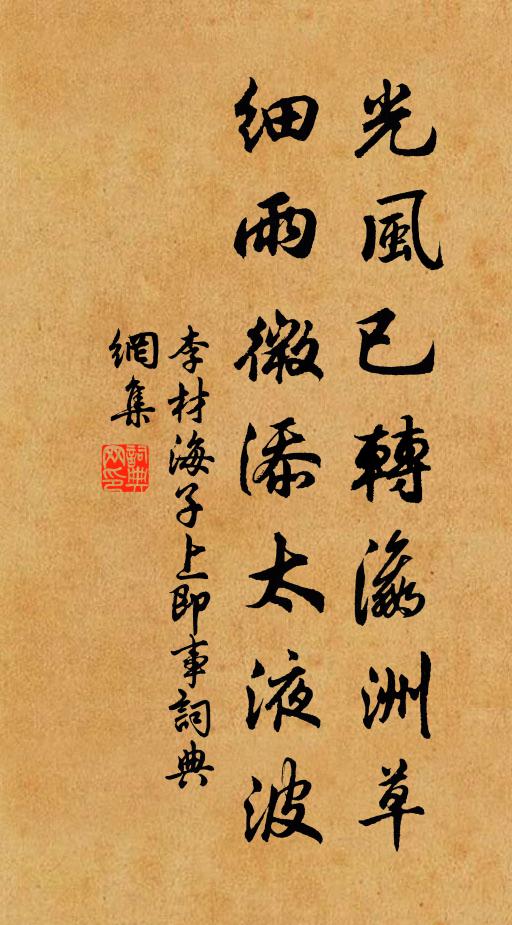 光風已轉瀛洲草
細雨微添太液波
李材海子上即事詞典
網集
詞典網印